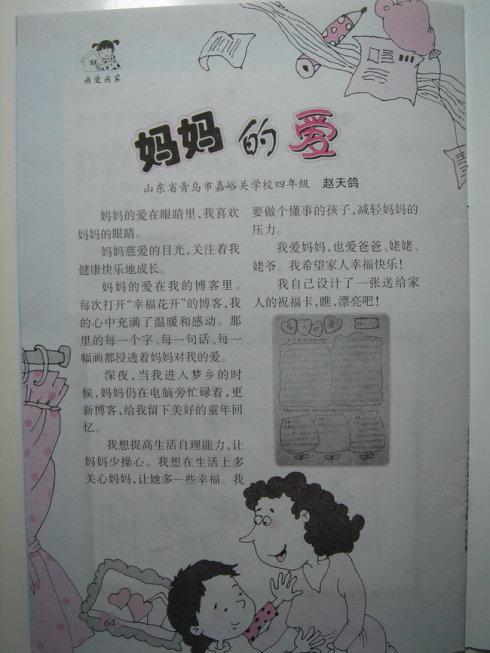 我爱我家
妈妈的爱
山东省青岛市嘉峪关学校四年级 赵天鸽
妈妈的爱在眼睛里,我喜欢
妈妈的眼睛。
妈妈慈爱的目光,关注着我
健康快乐地成长。
妈妈的爱在我的博客里。
每次打开“幸福花开”的博客,我
的心中充满了温暖和感动。那
里的每一个字、每一句话、每一
幅画都浸透着妈妈对我的爱。
深夜,当我进入梦乡的时
候,妈妈仍在电脑旁忙碌着,更
新博客,给我留下美好的童年回
忆。
我想提高生活自理能力,让
妈妈少操心。我想在生活上多
关心妈妈,让她多一些幸福。我
要做个懂事的孩子,减轻妈妈的
压力。
我爱妈妈,也爱爸爸、姥姥、
姥爷。我希望家人幸福快乐!
我自己设计了一张送给家
人的祝福卡,瞧,漂亮吧!
64